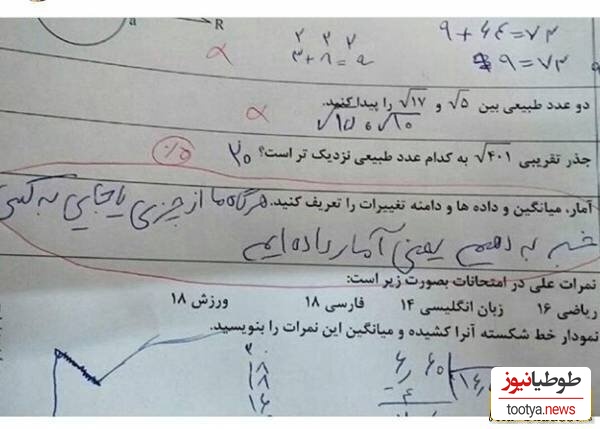 a
R
۲ ۲ ۲
۳ + ۸ = ۹
۹ + ۶۴ = ۷۳
۹ = ۷۳
دو عدد طبیعی بین √۵ و √۱۷ را پیدا کنید.
√۱۵ و √۱۰
جذر تقریبی √۴۰۱ به کدام عدد طبیعی نزدیک تر است؟ ۲۰
آمار، میانگین و داده ها و دامنه تغییرات را تعریف کنید. هرگاه ما از چیزی یا جایی به کسی
خبر بدهیم یعنی آمار داده ایم
نمرات علی در امتحانات بصورت زیر است:
ریاضی ۱۶ زبان انگلیسی ۱۴ فارسی ۱۸ ورزش ۱۸
نمودار خط شکسته آنرا کشیده و میانگین این نمرات را بنویسید.
۲۰
۱۸
۱۸
۱۶
طوطیانیوز
tootya.news